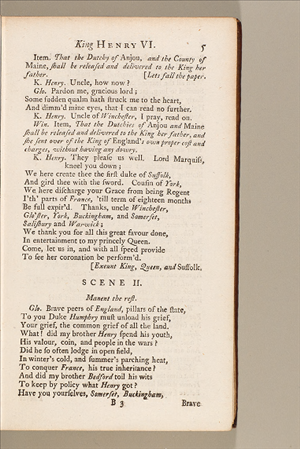 King HENRY VI. 5
Item. That the Dutchy of Anjou, and the County of
Maine, ſhall be releaſed and delivered to the King her
father. [Lets fall the paper.
K. Henry. Uncle, how now?
Glo. Pardon me, gracious lord;
Some ſudden qualm hath ſtruck me to the heart,
And dimm'd mine eyes, that I can read no further.
K. Henry. Uncle of Wincheſter, I pray, read on.
Win. Item, That the Dutchies of Anjou and Maine
ſhall be releaſed and delivered to the King her father, and
ſhe ſent over of the King of England's own proper coſt and
charges, without having any dowry.
K. Henry. They pleaſe us well. Lord Marquiſs,
kneel you down;
We here create thee the firſt duke of Suffolk,
And gird thee with the ſword. Couſin of York,
We here diſcharge your Grace from being Regent
I'th' parts of France, 'till term of eighteen months
Be full expir'd. Thanks, uncle Wincheſter,
Glo'ſter, York, Buckingham, and Somerſet,
Saliſbury and Warwick;
We thank you for all this great favour done,
In entertainment to my princely Queen.
Come, let us in, and with all ſpeed provide
To ſee her coronation be perform'd.
[Exeunt King, Queen, and Suffolk.
SCENE II.
Manent the reſt.
Glo. Brave peers of England, pillars of the ſtate,
To you Duke Humphry muſt unload his grief,
Your grief, the common grief of all the land.
What! did my brother Henry ſpend his youth,
His valour, coin, and people in the wars?
Did he ſo often lodge in open field,
In winter's cold, and ſummer's parching heat,
To conquer France, his true inheritance?
And did my brother Bedford toil his wits
To keep by policy what Henry got?
Have you yourſelves, Somerſet, Buckingham,
B 3 Brave